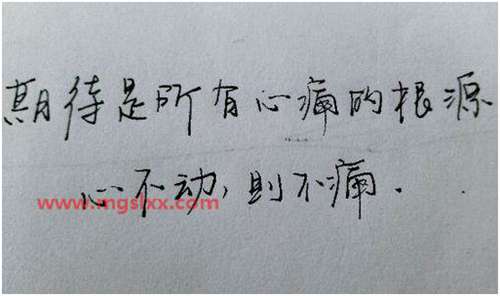 期待是所有心痛的根源
心不动，则不痛．
www.mgslxx.com